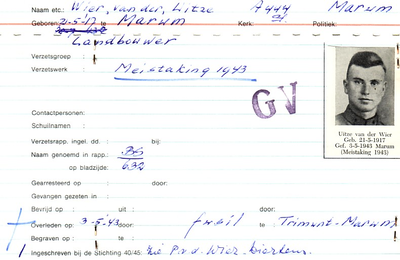 Naam etc.: Wier, van der, Uitze A 444 Marum
Geboren: 21-5-'17 te Marum Kerk: Politiek:
Landbouwer
Verzetsgroep :
Verzetswerk : Meistaking 1943
GV
Contactpersonen:
Schuilnaam :
Verzetsrapp. ingel. dd. : bij:
Naam genoemd in rapp.: BS
op bladzijde: 632
Uitze van der Wier
Geb. 21-5-1917
Gef. 3-5-1943 Marum
(Meistaking 1943)
Gearresteerd op : door:
Gevangen gezeten in :
Bevrijd op : uit : door:
Overleden op : 3-5-'43 te : fusil door: te Trimunt-Marum
Begraven op : te :
Ingeschreven bij de Stichting 40/45: zie P. v.d. Wier-